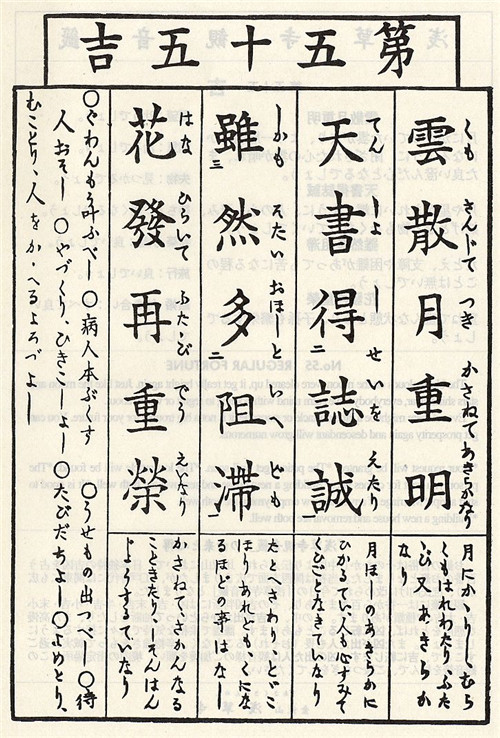 第五十五吉
くも さんじて つき かさねてあきらかなり
雲散月重明
月にかゝりしむら
くもはれわたりふた
あきらか
なり
てんしよ せいを えたり
天書得誌誠
月ほしのあきらかに
ひかるてい、人も心すみて
なきていなり
しかも そたい おほしといへども
雖然多阻滞
たとへさわりとゞこ
ほりあれどもくにな
るほどの事はなし
はな ひらいて ふたゝび
花發再重榮
かさねてさかんなる
こときたりしそんはん
じようするていなり
〇ぐわんもう叶ふべし 〇病人本ぶくす 〇うせもの出つべし 〇待
人おそし 〇やづくり、ひきこしよし 〇たびだちよし 〇よめとり、
むことり、人をかゝへるよろづよし